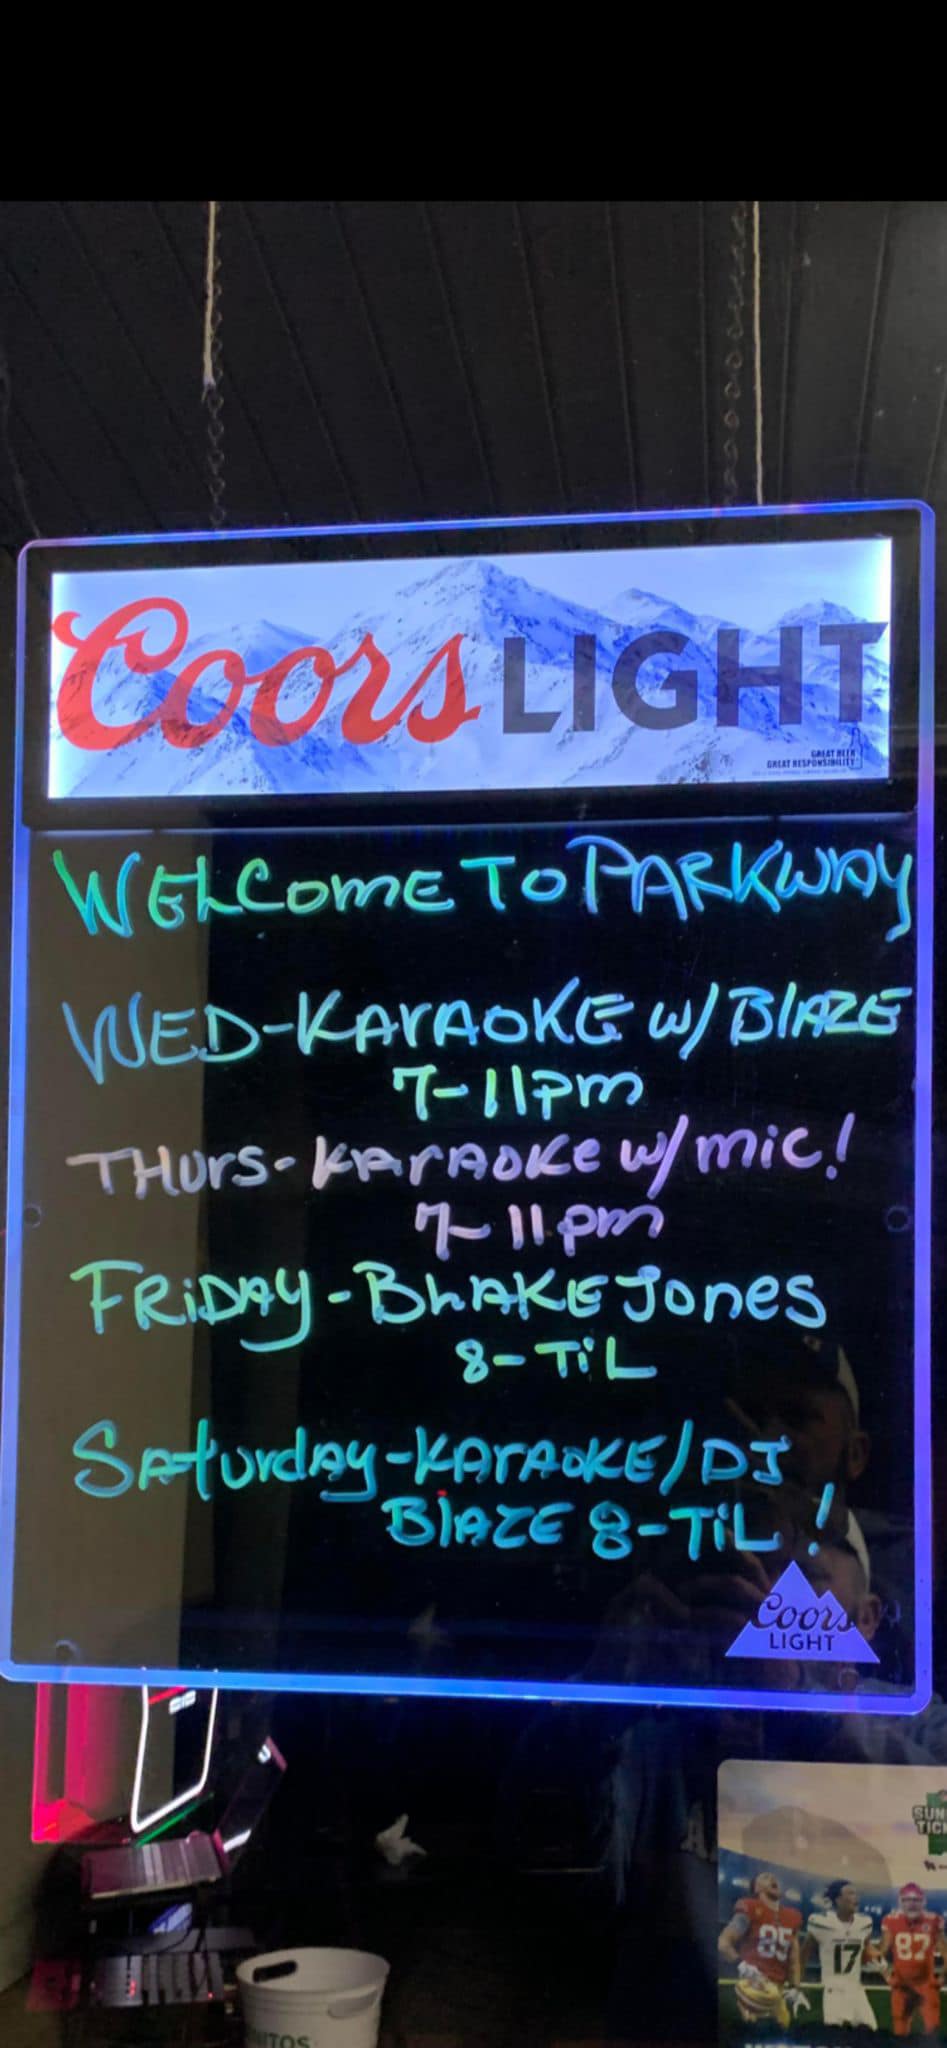 Coors LIGHT
GREAT BEER
GREAT RESPONSIBILITY
WELCOME TO PARKWAY
WED-KARAOKE W/ BLAZE
7-11pm
THURS- KARAOKE W/ MIC!
7-11pm
FRIDAY - BLAKE JONES
8-TiL
SATURDAY-KARAOKE/DJ
BLAZE 8-TiL !
Coors
LIGHT
85
17
87